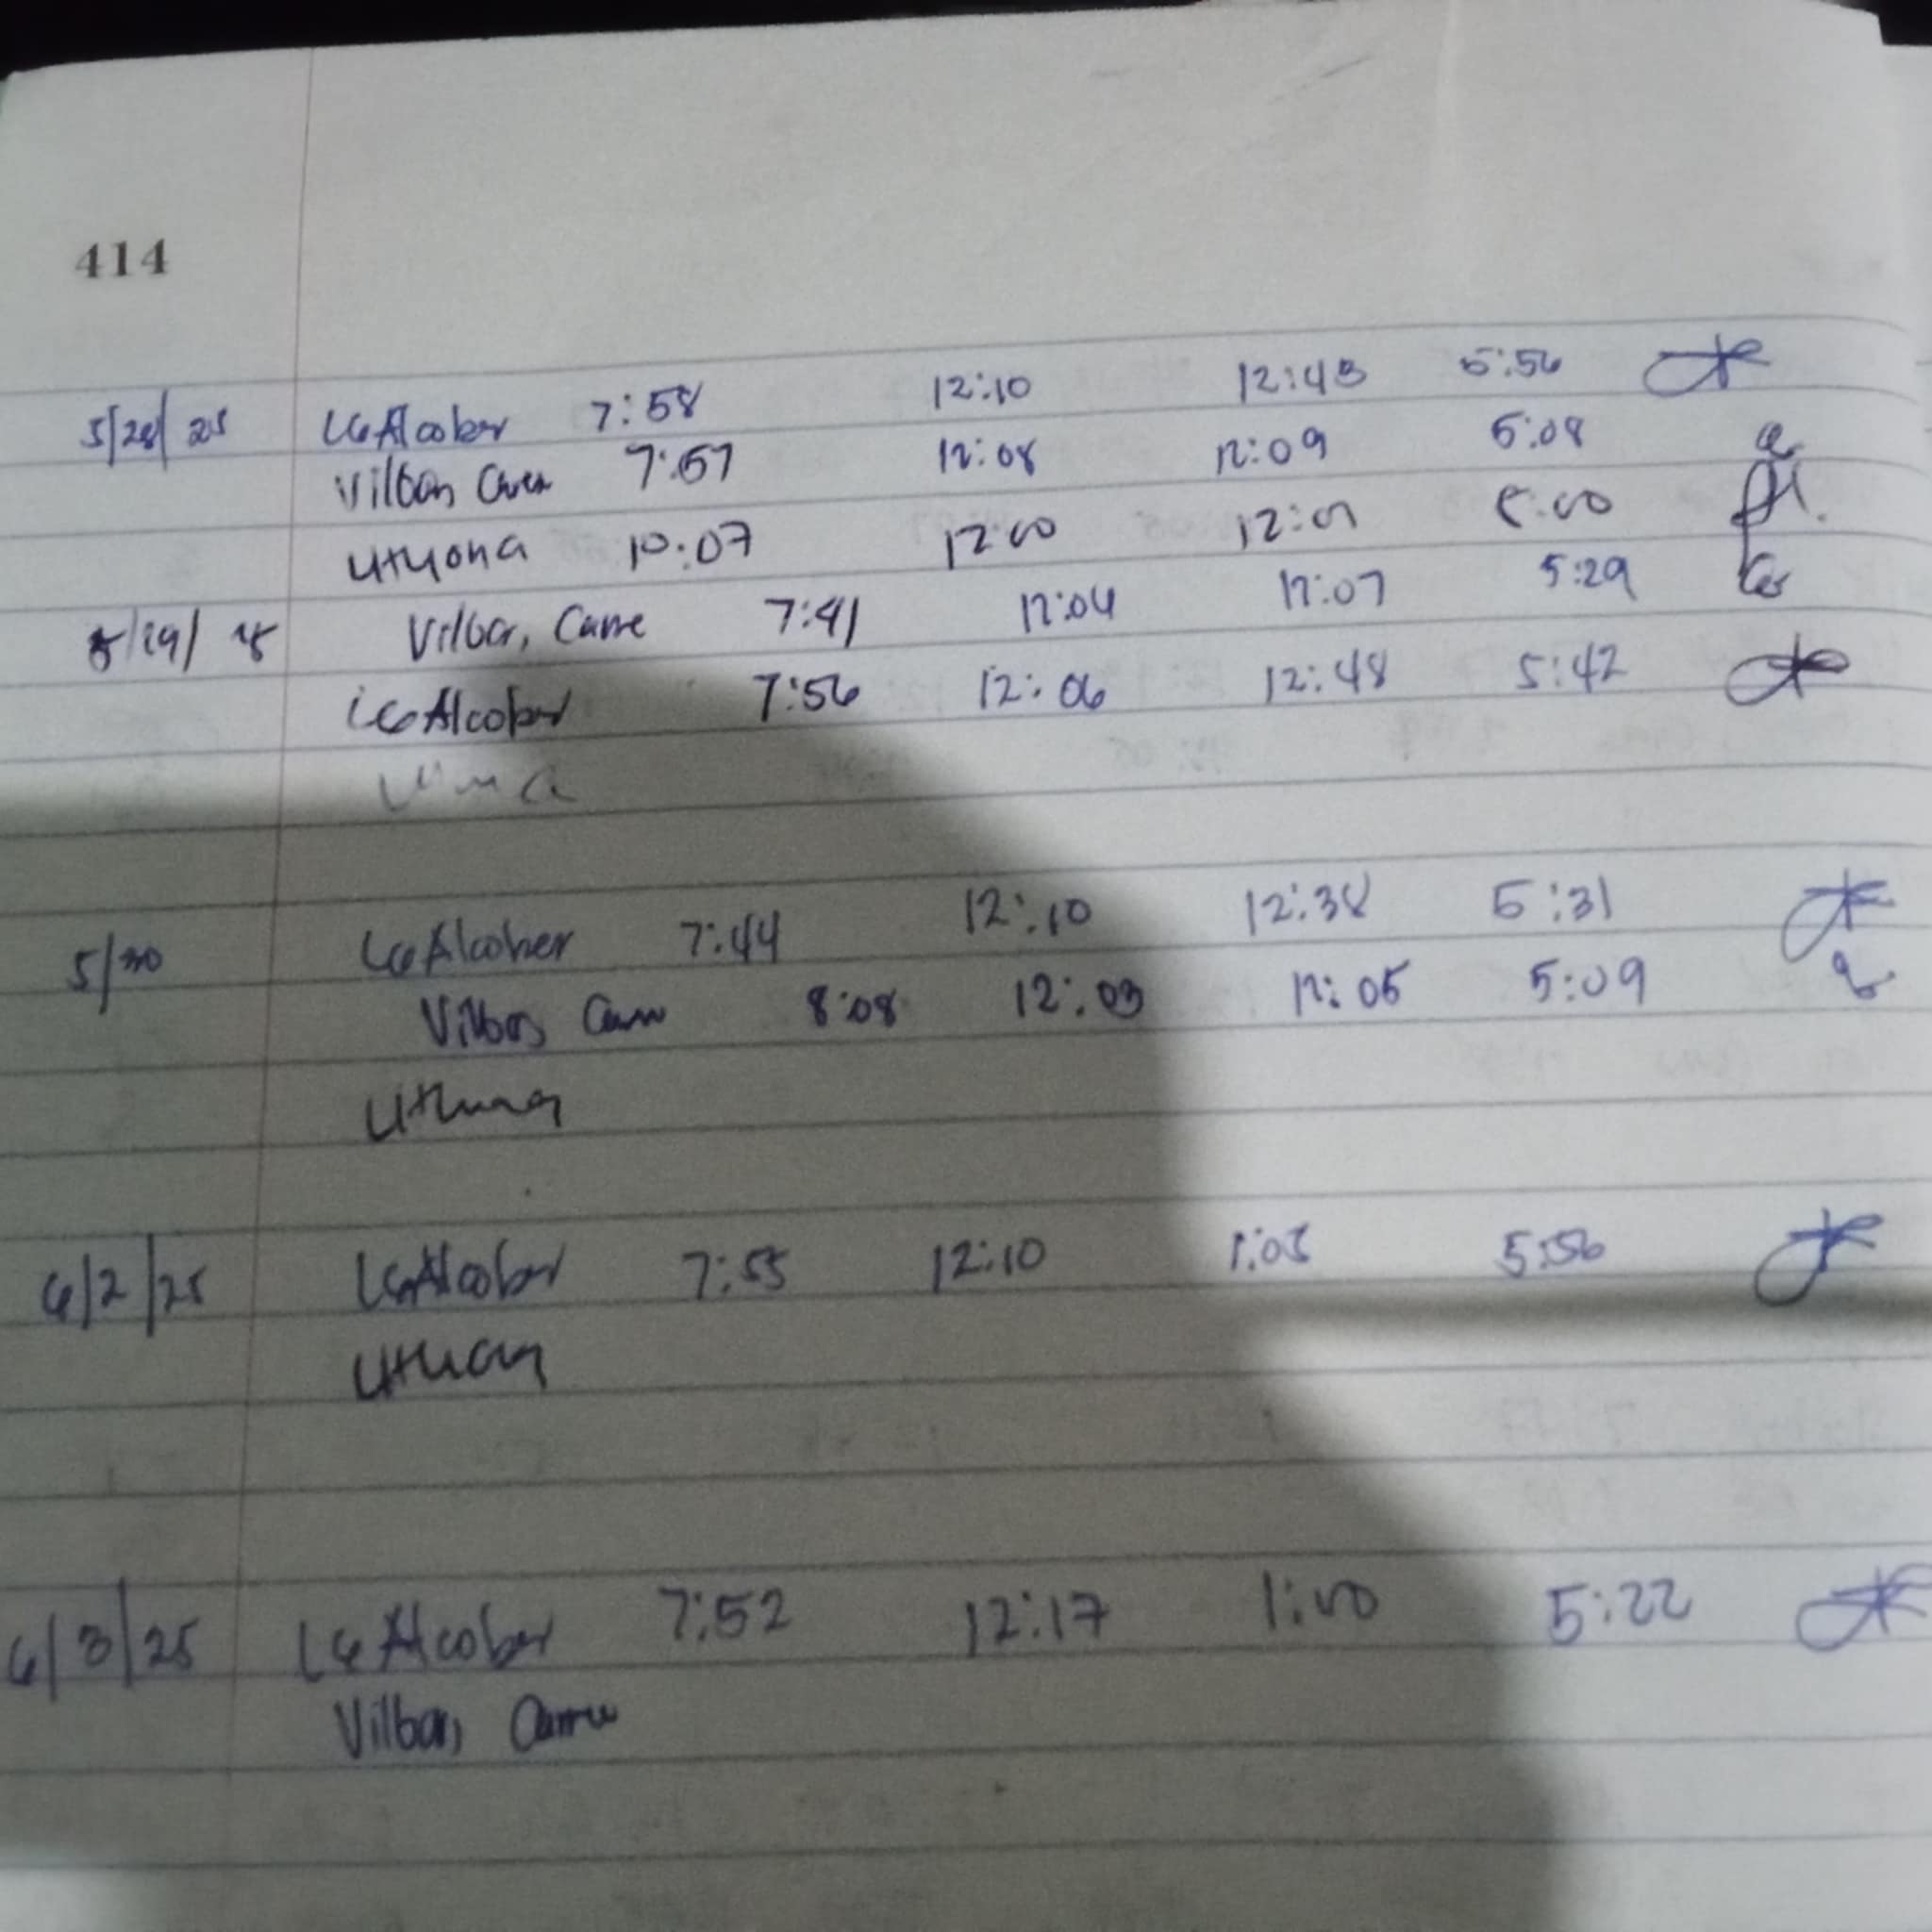 414
5/28/25 LGAlcober 7:58 12:10 12:43 5:56
Vilbar, 7:57 12:08 12:09 5:08
10:07 12:00 12:01 5:00
5/29/25 Vilbar, Came 7:41 12:04 12:07 5:29
LGAlcober 7:56 12:06 12:48 5:42
5/30 LGAlcober 7:44 12:10 12:38 5:31
Vilbar, 8:08 12:03 12:05 5:09
6/2/25 LGAlcober 7:55 12:10 1:03 5:56
6/3/25 LGAlcober 7:52 12:17 1:00 5:22
Vilbar, Came